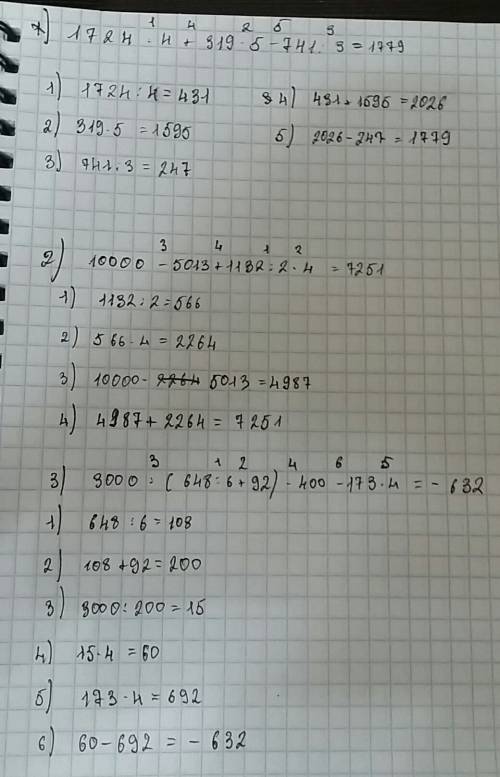 1 4 2 5 3
1) 1724 : 4 + 319 · 5 - 741 : 3 = 1779
1) 1724 : 4 = 431
2) 319 · 5 = 1595
3) 741 : 3 = 247
4) 431 + 1595 = 2026
5) 2026 - 247 = 1779
3 4 1 2
2) 10000 - 5013 + 1132 : 2 · 4 = 7251
1) 1132 : 2 = 566
2) 566 · 4 = 2264
3) 10000 - 2264 5013 = 4987
4) 4987 + 2264 = 7251
3 1 2 4 6 5
3) 3000 : (648 : 6 + 92) · 400 - 173 · 4 = - 632
1) 648 : 6 = 108
2) 108 + 92 = 200
3) 3000 : 200 = 15
4) 15 · 4 = 60
5) 173 · 4 = 692
6) 60 - 692 = - 632